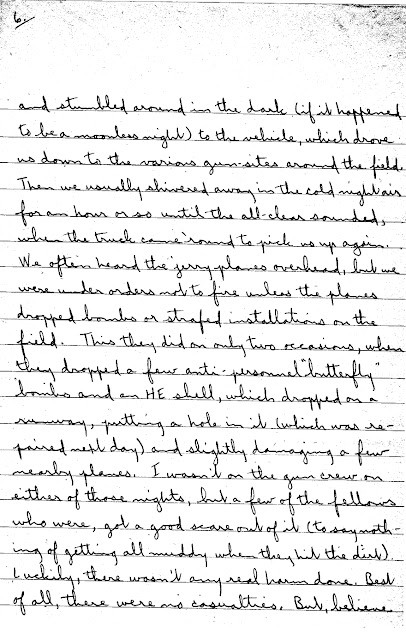 6.
and stumbled around in the dark (if it happened
to be a moonless night) to the vehicle, which drove
us down to the various gun-sites around the field.
Then we usually shivered away in the cold night air
for an hour or so until the all-clear sounded,
when the truck came 'round to pick us up again.
We often heard the jerry planes overhead, but we
were under orders not to fire unless the planes
dropped bombs or strafed installations on the
field. This they did on only two occasions, when
they dropped a few anti-personnel "butterfly"
bombs and an HE shell, which dropped on a
runway, putting a hole in it (which was re-
paired next day) and slightly damaging a few
nearby planes. I wasn't on the gun crew on
either of those nights, but a few of the fellows
who were, got a good scare out of it (to say noth-
ing of getting all muddy when they hit the dirt).
Luckily, there wasn't any real harm done. Best
of all, there were no casualties. But, believe